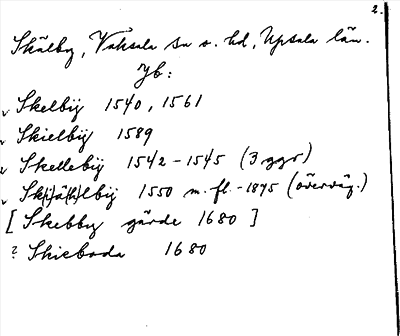 2.
Skälby, Vaksala sn o. hd, Upsala län.
Jb:
v Skelbÿ 1540, 1561
v Skielbÿ 1589
v Skellebÿ 1542-1545 (3 ggr)
v Sk(i)ä(h)lbÿ 1550 m. fl. -1845 (överväg.)
[Skebby gärde 1680]
? Skieboda 1680